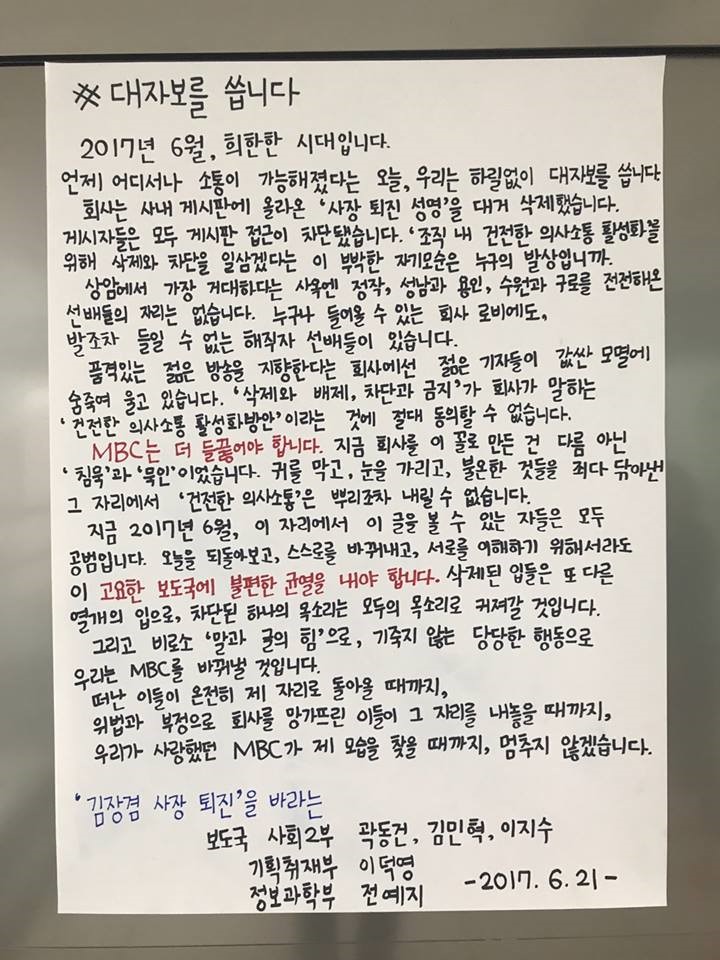 ※ 대자보를 씁니다
2017년 6월, 희한한 시대입니다.
언제 어디서나 소통이 가능해졌다는 오늘, 우리는 하릴없이 대자보를 씁니다
회사는 사내 게시판에 올라온 '사장 퇴진 성명'을 대거 삭제했습니다.
게시자들은 모두 게시판 접근이 차단됐습니다. '조직 내 건전한 의사소통 활성화'를
위해 삭제와 차단을 일삼겠다는 이 부박한 자기모순은 누구의 발상입니까.
상암에서 가장 거대하다는 사옥엔 정작, 성남과 용인, 수원과 구로를 전전해온
선배들의 자리는 없습니다. 누구나 들어올 수 있는 회사 로비에도,
발조차 들일 수 없는 해직자 선배들이 있습니다.
품격있는 젊은 방송을 지향한다는 회사에선 젊은 기자들이 값싼 모멸에
숨죽여 울고 있습니다. '삭제와 배제, 차단과 금지'가 회사가 말하는
'건전한 의사소통 활성화방안'이라는 것에 절대 동의할 수 없습니다.
MBC는 더 들끓어야 합니다. 지금 회사를 이 꼴로 만든 건 다름 아닌
'침묵'과 '묵인'이었습니다. 귀를 막고, 눈을 가리고, 불온한 것들을 죄다 닦아낸
그 자리에서 '건전한 의사소통'은 뿌리조차 내릴 수 없습니다.
지금 2017년 6월, 이 자리에서 이 글을 볼 수 있는 자들은 모두
공범입니다. 오늘을 되돌아보고, 스스로를 바꿔내고, 서로를 이해하기 위해서라도
이 고요한 보도국에 불편한 균열을 내야 합니다. 삭제된 입들은 또 다른
열개의 입으로, 차단된 하나의 목소리는 모두의 목소리로 커져갈 것입니다.
그리고 비로소 '말과 글의 힘'으로, 기죽지 않는 당당한 행동으로
우리는 MBC를 바꿔낼 것입니다.
떠난 이들이 온전히 제 자리로 돌아올 때까지,
위법과 부정으로 회사를 망가뜨린 이들이 그 자리를 내놓을 때까지,
우리가 사랑했던 MBC가 제 모습을 찾을 때까지, 멈추지 않겠습니다.
'김장겸 사장 퇴진'을 바라는
보도국 사회2부 곽동건, 김민혁, 이지수
기획취재부 이덕영
정보과학부 전예지 -2017. 6. 21-